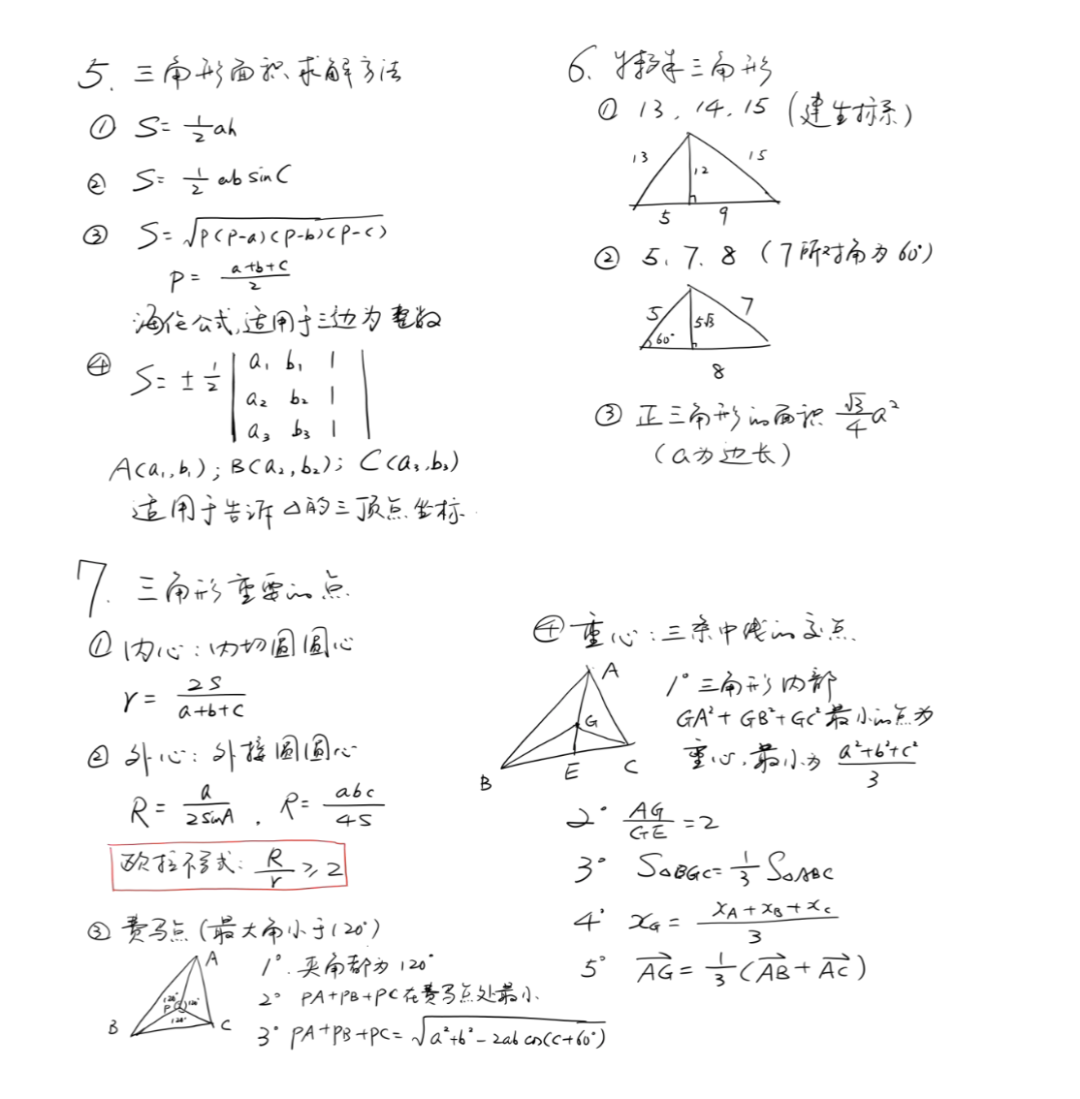 5. 三角形面积求解方法
① S = 1/2 ah
② S = 1/2 ab sin C
③ S = √(P(P-a)(P-b)(P-c))
P = (a+b+c)/2
海伦公式,适用于三边为整数
④ S = ± 1/2 | a₁ b₁ 1 |
| a₂ b₂ 1 |
| a₃ b₃ 1 |
A(a₁,b₁); B(a₂,b₂); C(a₃,b₃)
适用于告诉△的三顶点坐标.
6. 特殊三角形
① 13, 14, 15 (建坐标系)
13 12 15
5 9
② 5、7、8 (7所对角为60°)
5 5√3 7
60°
8
③ 正三角形的面积 √3/4 a²
(a为边长)
7. 三角形重要的点
① 内心: 内切圆圆心
r = 2S/(a+b+c)
② 外心: 外接圆圆心
R = a/(2sinA) , R = abc/4S
欧拉不等式: R/r ≥ 2
③ 费马点 (最大角小于120°)
A
120° P 120°
120°
B C
1°. 夹角都为120°
2° PA+PB+PC在费马点处最小.
3° PA+PB+PC = √(a²+b²-2ab cos(C+60°))
④ 重心: 三条中线的交点.
A
G
B E C
1° 三角形内部
GA²+GB²+GC²最小的点为
重心, 最小为 (a²+b²+c²)/3
2° AG/GE = 2
3° S△BGC = 1/3 S△ABC
4° x_G = (x_A+x_B+x_C)/3
5° →AG = 1/3 (→AB + →AC)